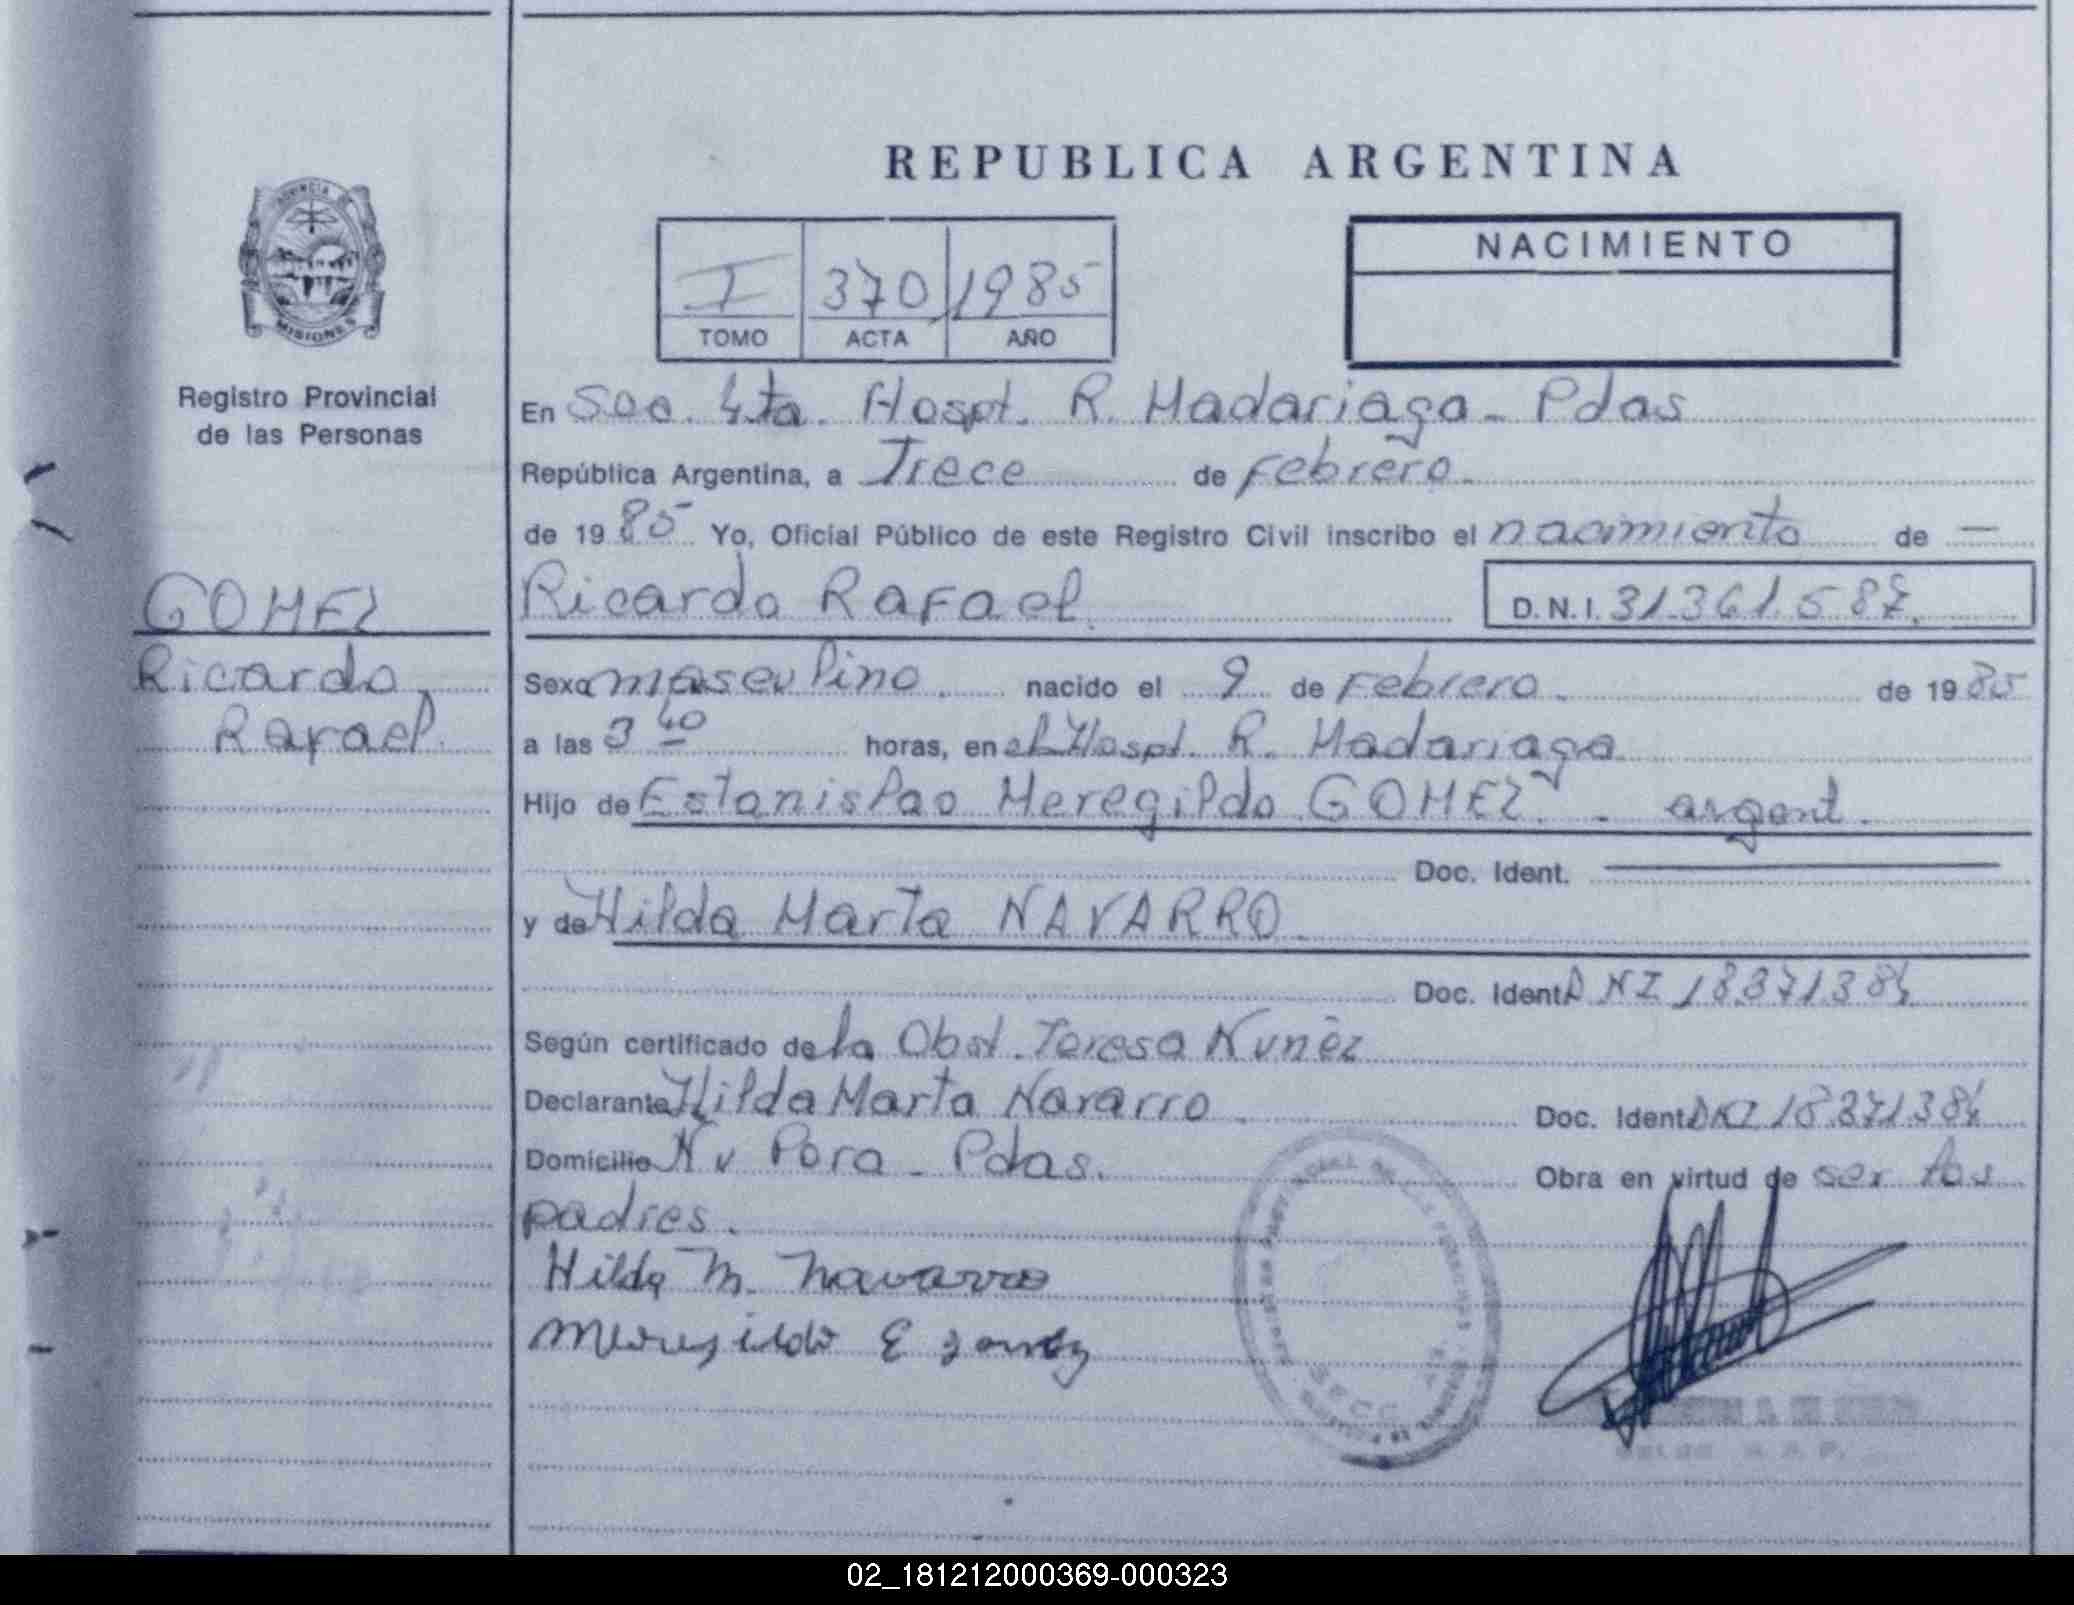 REPUBLICA ARGENTINA
PROVINCIA DE
MISIONES
Registro Provincial
de las Personas
I 370 1985
TOMO ACTA AÑO
NACIMIENTO
En Sec. 4ta. Hospt. R. Madariaga - Pdas
República Argentina, a Trece de Febrero.
de 1985 Yo, Oficial Público de este Registro Civil inscribo el nacimiento de —
GOMEZ
Ricardo
Rafael.
Ricardo Rafael. D.N.I. 31.361.587.
Sexo masculino. nacido el 9 de Febrero. de 1985
a las 3 40 horas, en el Hospt. R. Madariaga
Hijo de Estanislao Meregildo GOMEZ. - argent.
Doc. Ident.
y de Hilda Marta NAVARRO.
Doc. Ident. DNI 18.371.384
Según certificado de la Obst. Teresa Nuñez
Declarante Hilda Marta Navarro. Doc. Ident. DNI 18.371.384
Domicilio Ñu Pora - Pdas. Obra en virtud de ser los
padres.
Hilda M. Navarro
Meregildo E gomez
02_181212000369-000323